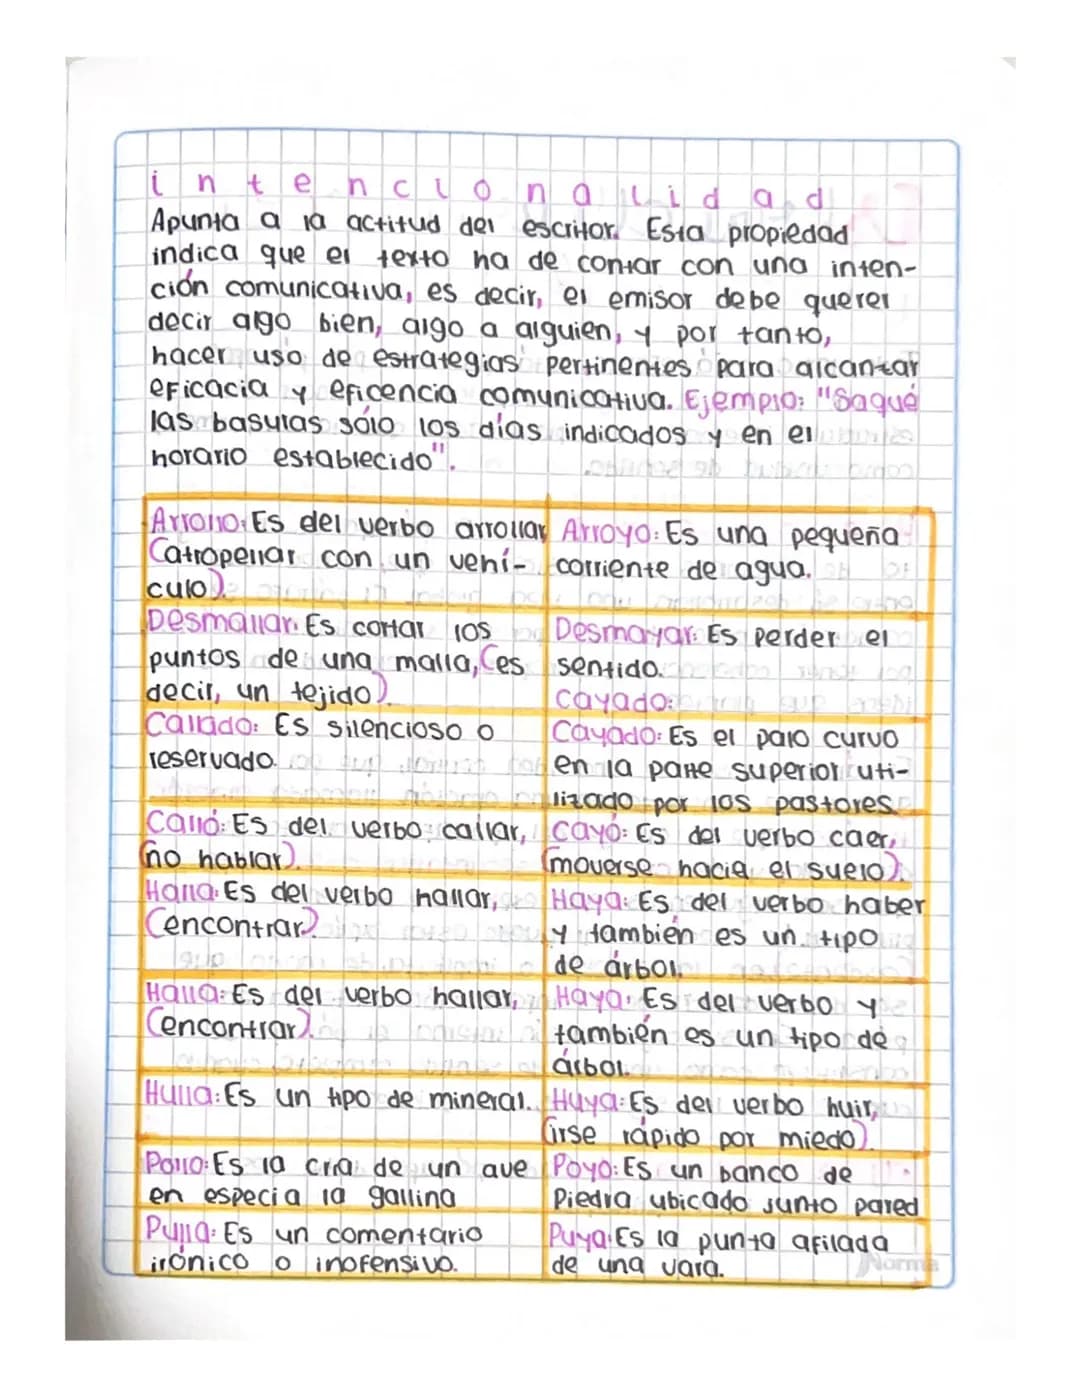 intencionalidad
Apunta a la actitud del escritor. Esta propiedad
indica que el texto ha de contar con una inten-
ción comunicativa, es decir, el emisor debe querer
decir algo bien, algo a alguien, y por tanto,
hacer uso de estrategias pertinentes para alcanzar
eficacia y eficencia comunicativa. Ejemplo: "Saqué
las basuras sólo los días indicados y en el
horario establecido".
Arrollo: Es del verbo arrollar
(atropellar con un vehí-
culo).
Arroyo: Es una pequeña
corriente de agua.
Desmallar: Es cortar los
puntos de una malla, (es
decir, un tejido).
Desmayar: Es perder el
sentido.
cayado:
Callado: Es silencioso o
reservado.
Cayado: Es el palo curvo
en la parte superior uti-
lizado por los pastores
Calló: Es del verbo callar,
(no hablar).
cayó: Es del verbo caer,
(moverse hacia el suelo).
Halla: Es del verbo hallar,
(encontrar).
Haya: Es del verbo haber
y también es un tipo
de árbol.
Halla: Es del verbo hallar,
(encontrar).
Haya: Es del verbo y
también es un tipo de
árbol.
Hulla: Es un tipo de mineral.
Huya: Es del verbo huir,
(irse rápido por miedo).
Pollo: Es la cria de un ave
en especia la gallina
Poyo: Es un banco de
Piedra ubicado junto pared
Pulla: Es un comentario
irónico o inofensivo.
Puya: Es la punta afilada
de una vara.
Norma